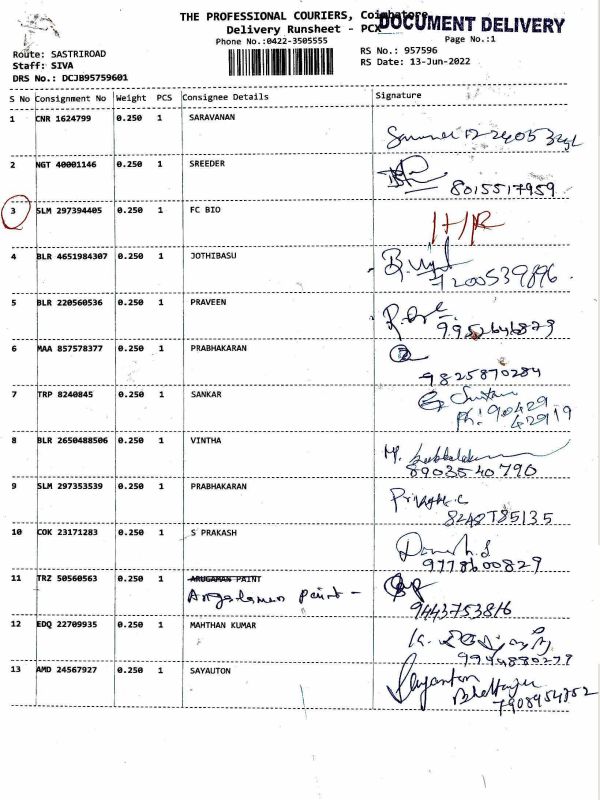 THE PROFESSIONAL COURIERS, Coimbatore
DOCUMENT DELIVERY
Delivery Runsheet - PCX
Phone No.:0422-3505555
Page No.:1
Route: SASTRIROAD
RS No.: 957596
Staff: SIVA
RS Date: 13-Jun-2022
DRS No.: DCJB95759601
S No Consignment No Weight PCS Consignee Details Signature
1 CNR 1624799 0.250 1 SARAVANAN
2 NGT 40001146 0.250 1 SREEDER
8015517959
3 SLM 297394405 0.250 1 FC BIO
4 BLR 4651984307 0.250 1 JOTHIBASU
7200539896
5 BLR 220560536 0.250 1 PRAVEEN
9952646829
6 MAA 857578377 0.250 1 PRABHAKARAN
9825870284
7 TRP 8240845 0.250 1 SANKAR
Ph: 90429
42919
8 BLR 2650488506 0.250 1 VINTHA
8903540790
9 SLM 297353539 0.250 1 PRABHAKARAN
10 COK 23171283 0.250 1 S PRAKASH
9778600829
11 TRZ 50560563 0.250 1 ARUGAMAN PAINT
Angalamen paint -
9443753816
12 EDQ 22709935 0.250 1 MAHTHAN KUMAR
13 AMD 24567927 0.250 1 SAYAUTON
Sayanton
Bhattarjee
7908954352